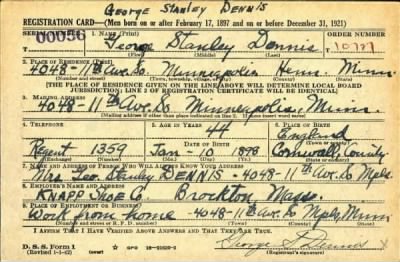 George Stanley Dennis
REGISTRATION CARD—(Men born on or after February 17, 1897 and on or before December 31, 1921)
SERIAL NUMBER 1. NAME (Print) ORDER NUMBER
00056 George Stanley Dennis 10777
(First) (Middle) (Last)
2. PLACE OF RESIDENCE (Print)
4048-11th Ave. So Minneapolis Henn. Minn.
(Number and street) (Town, township, village, or city) (County) (State)
[THE PLACE OF RESIDENCE GIVEN ON THE LINE ABOVE WILL DETERMINE LOCAL BOARD
JURISDICTION; LINE 2 OF REGISTRATION CERTIFICATE WILL BE IDENTICAL]
3. MAILING ADDRESS
4048-11th Ave. So Minneapolis, Minn.
[Mailing address if other than place indicated on line 2. If same insert word same]
4. TELEPHONE 5. AGE IN YEARS 6. PLACE OF BIRTH
44 England
DATE OF BIRTH
Regent 1359 Jan-10 1898 Cornwall County
(Exchange) (Number) (Mo.) (Day) (Yr.) (State or country)
7. NAME AND ADDRESS OF PERSON WHO WILL ALWAYS KNOW YOUR ADDRESS
Mrs. Geo. Stanley DENNIS - 4048-11th Ave. So Mpls
8. EMPLOYER'S NAME AND ADDRESS
KNAPP Shoe Co Brockton Mass.
9. PLACE OF EMPLOYMENT OR BUSINESS
Work from home - 4048-11th Ave. So Mpls, Minn
(Number and street or R. F. D. number) (Town) (County) (State)
I AFFIRM THAT I HAVE VERIFIED ABOVE ANSWERS AND THAT THEY ARE TRUE.
D. S. S. Form 1
(Revised 1-1-42) (over)
George S Dennis X
(Registrant's signature)